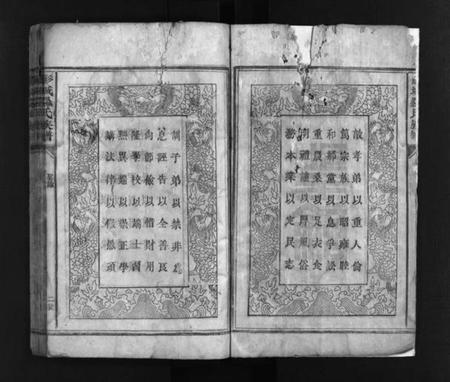 敦孝弟以重人倫
篤宗族以昭雍睦
和鄉黨以息爭訟
重農桑以足衣食
明禮讓以厚風俗
務本業以定民志
訓子弟以禁非爲
息誣告以全善良
尚節儉以惜財用
隆學校以端士習
黜異端以崇正學
講法律以儆愚頑
彭城氏族譜